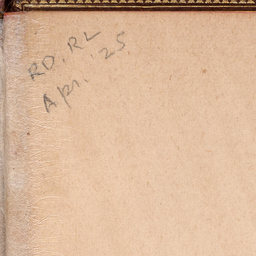 RD. RL
Apr. '25